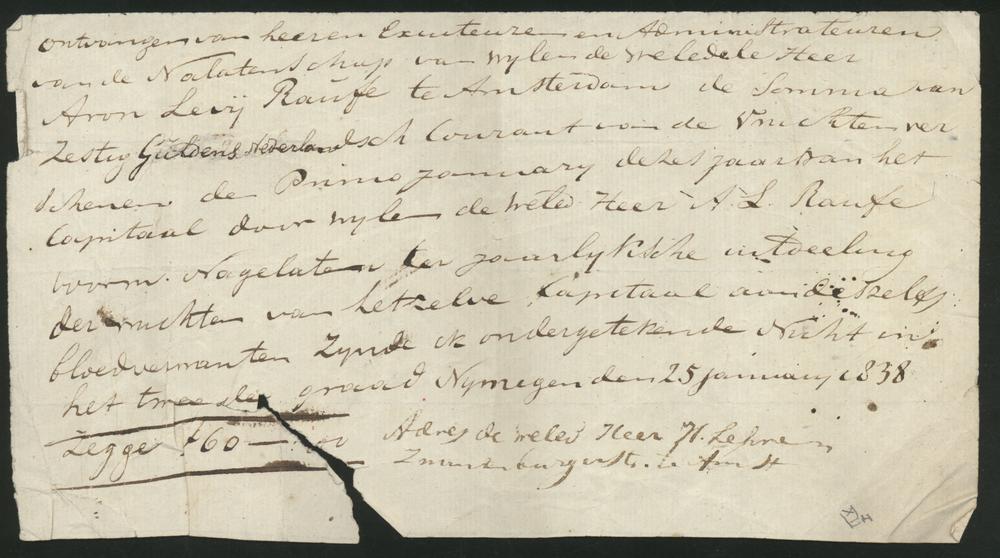 ontvangen van heeren Executeuren en Administrateuren
van de Nalatenschap van wylen de weledele Heer
Aron Levij Raufe te Amsterdam de Somma van
Zestig Guldens Nederlandsch Courant van de Vruchten ver
schenen de Primo january dezes jaars van het
Capitaal door wylen de weled Heer A. L. Raufe
voorn. Nagelaten ter jaarlyksche uitdeeling
der vruchten van hetzelve Capitaal aan deszelfs
bloedverwanten Zynde ik ondergetekende Nicht in
het tweede graad Nymegen den 25 january 1838
Zegge f 60 —
Adres de weled Heer H. Lehren